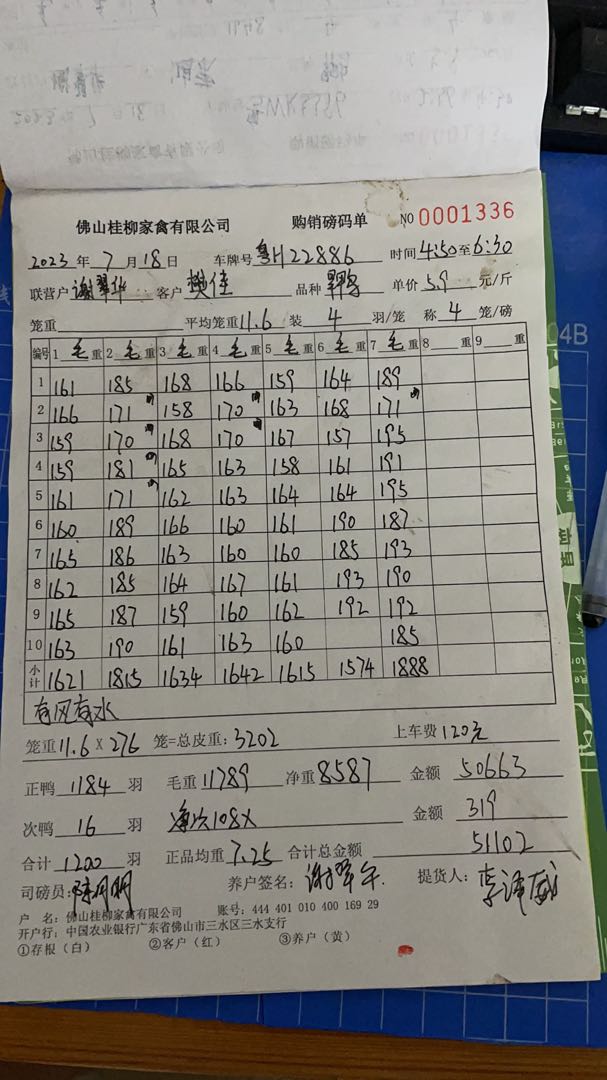 佛山桂柳家禽有限公司 购销磅码单 NO 0001336
2023 年 7 月 18 日 车牌号 粤H22886 时间 4:50 至 6:30
联营户 谢翠华 客户 樊佳 品种 单价 5.9 元/斤
笼重 平均笼重 11.6 装 4 羽/笼 称 4 笼/磅
编号 1 毛 重 2 毛 重 3 毛 重 4 毛 重 5 毛 重 6 毛 重 7 毛 重 8 重 9 重
1 161 185 168 166 159 164 189
2 166 171 158 170 163 168 171
3 159 170 168 170 167 157 195
4 159 181 165 163 158 161 191
5 161 171 162 163 164 164 195
6 160 189 166 160 161 190 187
7 165 186 163 160 160 185 193
8 162 185 164 167 161 193 190
9 165 187 159 160 162 192 192
10 163 190 161 163 160 185
小计 1621 1815 1634 1642 1615 1574 1888
有风有水
笼重 11.6 x 276 笼=总皮重: 3202 上车费 120元
正鸭 1184 羽 毛重 11789 净重 8587 金额 50663
次鸭 16 羽 净次108x 金额 319
合计 1200 羽 正品均重 7.25 合计总金额 51102
司磅员: 养户签名: 谢翠华 提货人:
户 名: 佛山桂柳家禽有限公司 账号: 444 401 010 400 169 29
开户行: 中国农业银行广东省佛山市三水区三水支行
①存根（白） ②客户（红） ③养户（黄）
04B